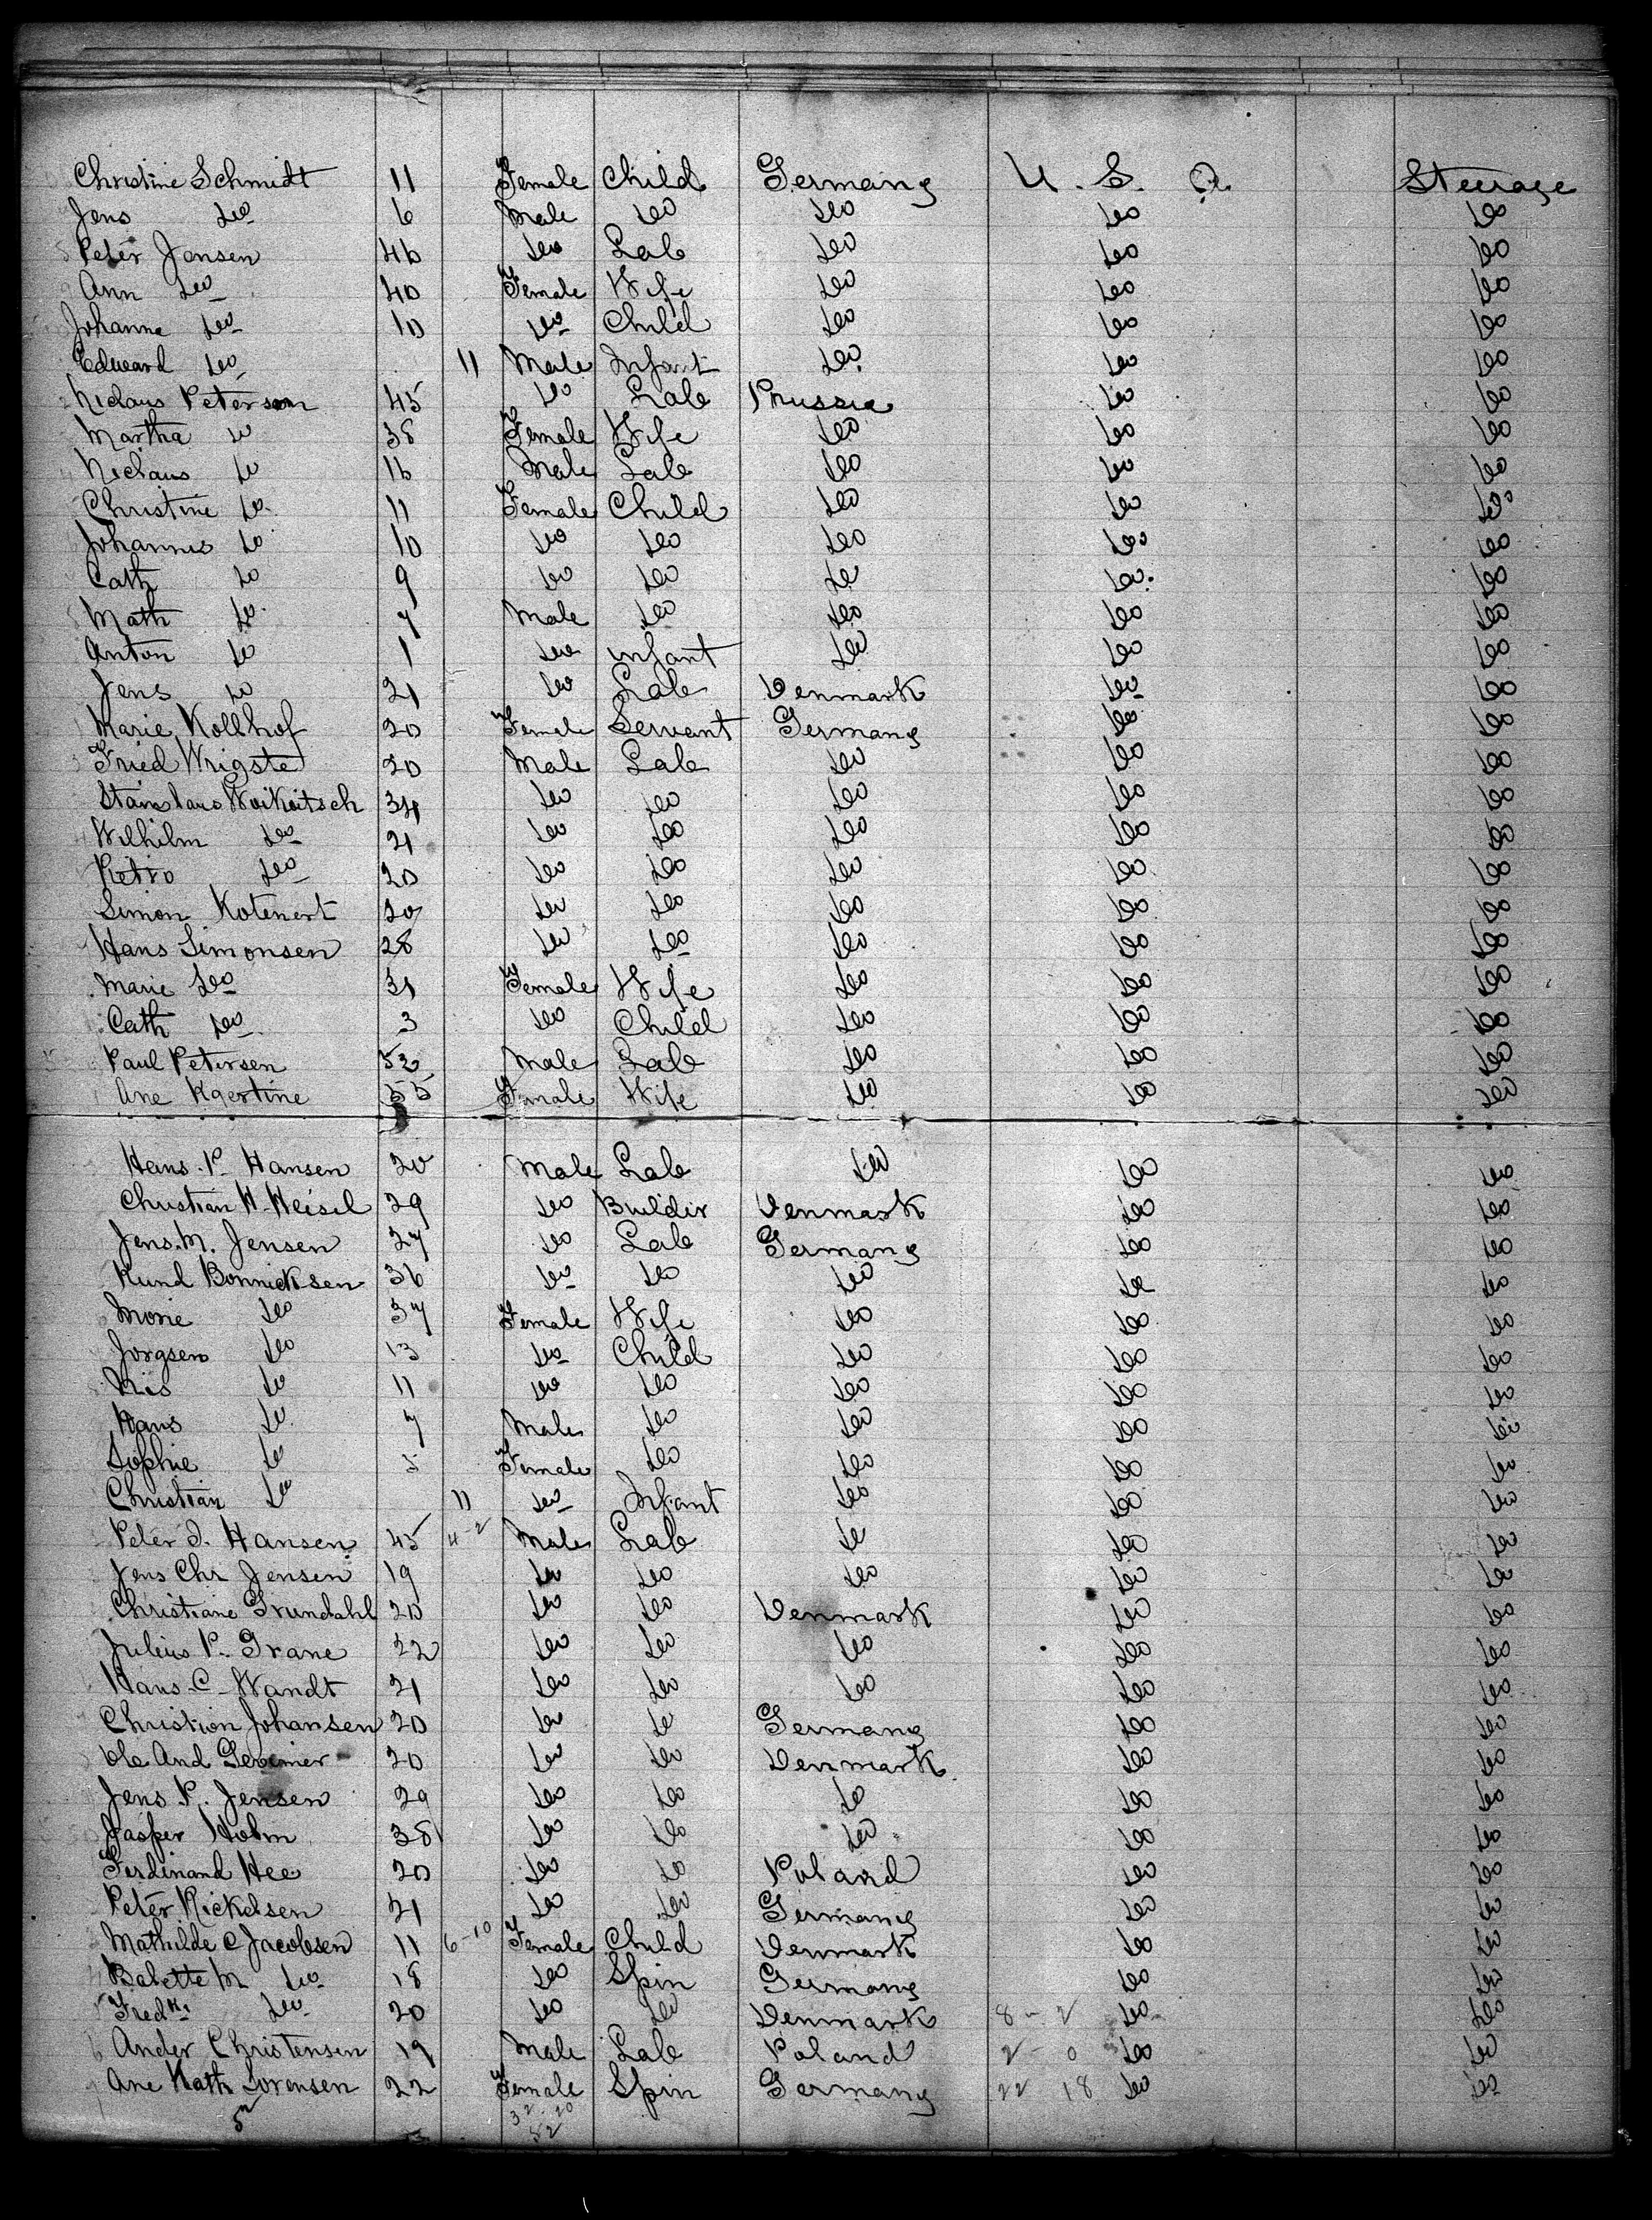 Christine Schmidt 11 Female Child Germany U. S. A. Steerage
Jens do 6 Male do do do do
Peter Jansen 46 do Lab do do do
Ann do 40 Female Wife do do do
Johanna do 10 do Child do do do
Edward do 11 Male Infant do do do
Niclaus Peterson 45 do Lab Prussia do do
Martha do 38 Female Wife do do do
Niclaus do 16 Male Lab do do do
Christine do 11 Female Child do do do
Johannes do 10 do do do do do
Cath do 9 do do do do do
Math do 7 Male do do do do
Anton do 1 do infant do do do
Jens do 21 do Lab Denmark do do
Marie Kollhof 20 Female Servant Germany do do
Fried Wrigste 20 Male Lab do do do
Stanslaus Woikoitsch 34 do do do do do
Wilhilm do 21 do do do do do
Petro do 20 do do do do do
Simon Kotenert 20 do do do do do
Hans Simonsen 28 do do do do do
Marie do 31 Female Wife do do do
Cath do 3 do Child do do do
Paul Petersen 52 Male Lab do do do
Ane Kgestine 55 Female Wife do do do
Hans P. Hansen 20 Male Lab do do do
Christian H. Heisel 29 do Buildir Denmark do do
Jens. M. Jensen 27 do Lab Germany do do
Kund Bonnicksen 36 do do do do do
Marie do 37 Female Wife do do do
Jorgsen do 13 do Child do do do
Nis do 11 do do do do do
Hans do 7 Male do do do do
Sophie do 5 Female do do do do
Christian do 11 do Infant do do do
Peter J. Hansen 45 4-2 Male Lab do do do
Jens Chr Jensen 19 do do do do do
Christiane Grundahl 20 do do Denmark do do
Julius P. Grane 22 do do do do do
Hans C. Wandt 21 do do do do do
Christion Johansen 20 do do Germany do do
Ole And 20 do do Denmark do do
Jens P. Jensen 29 do do do do do
Jasper Holm 38 do do do do do
Ferdinand Hee 20 do do Poland do do
Peter Rickelsen 21 do do Germany do do
Mathilde C Jacobsen 11 6-10 Female Child Denmark do do
Babette M do 18 do Spin Germany do do
Fredk. do 20 do do Denmark 8-2 do do
Ander Christensen 19 Male Lab Poland 2-0 do do
Ane Kath Sorensen 22 Female Spin Germany 22 18 do do
32 20
52